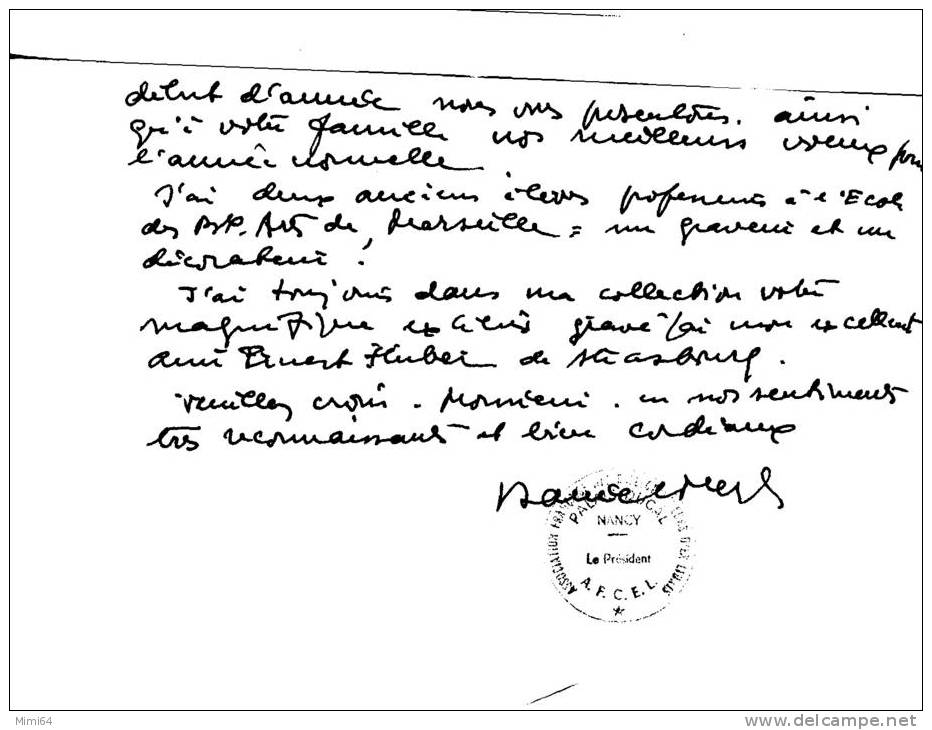 début d'année nous vous présentons. ainsi
qu'à votre famille nos meilleurs voeux pour
l'année nouvelle
J'ai deux anciens élèves professeurs à l'Ecole
des Bx. Arts de Marseille = un graveur et un
décorateur !
J'ai toujours dans ma collection votre
magnifique ex libris gravé par mon excellent
ami Ernest Huber de Strasbourg.
Veuillez croire. Monsieur. en nos sentiments
très reconnaissants et bien cordiaux
ASSOCIATION FRANÇAISE
D'EX LIBRIS
PALAIS DUCAL
NANCY
Le Président
A. F. C. E. L.
Mimi64
www.delcampe.net